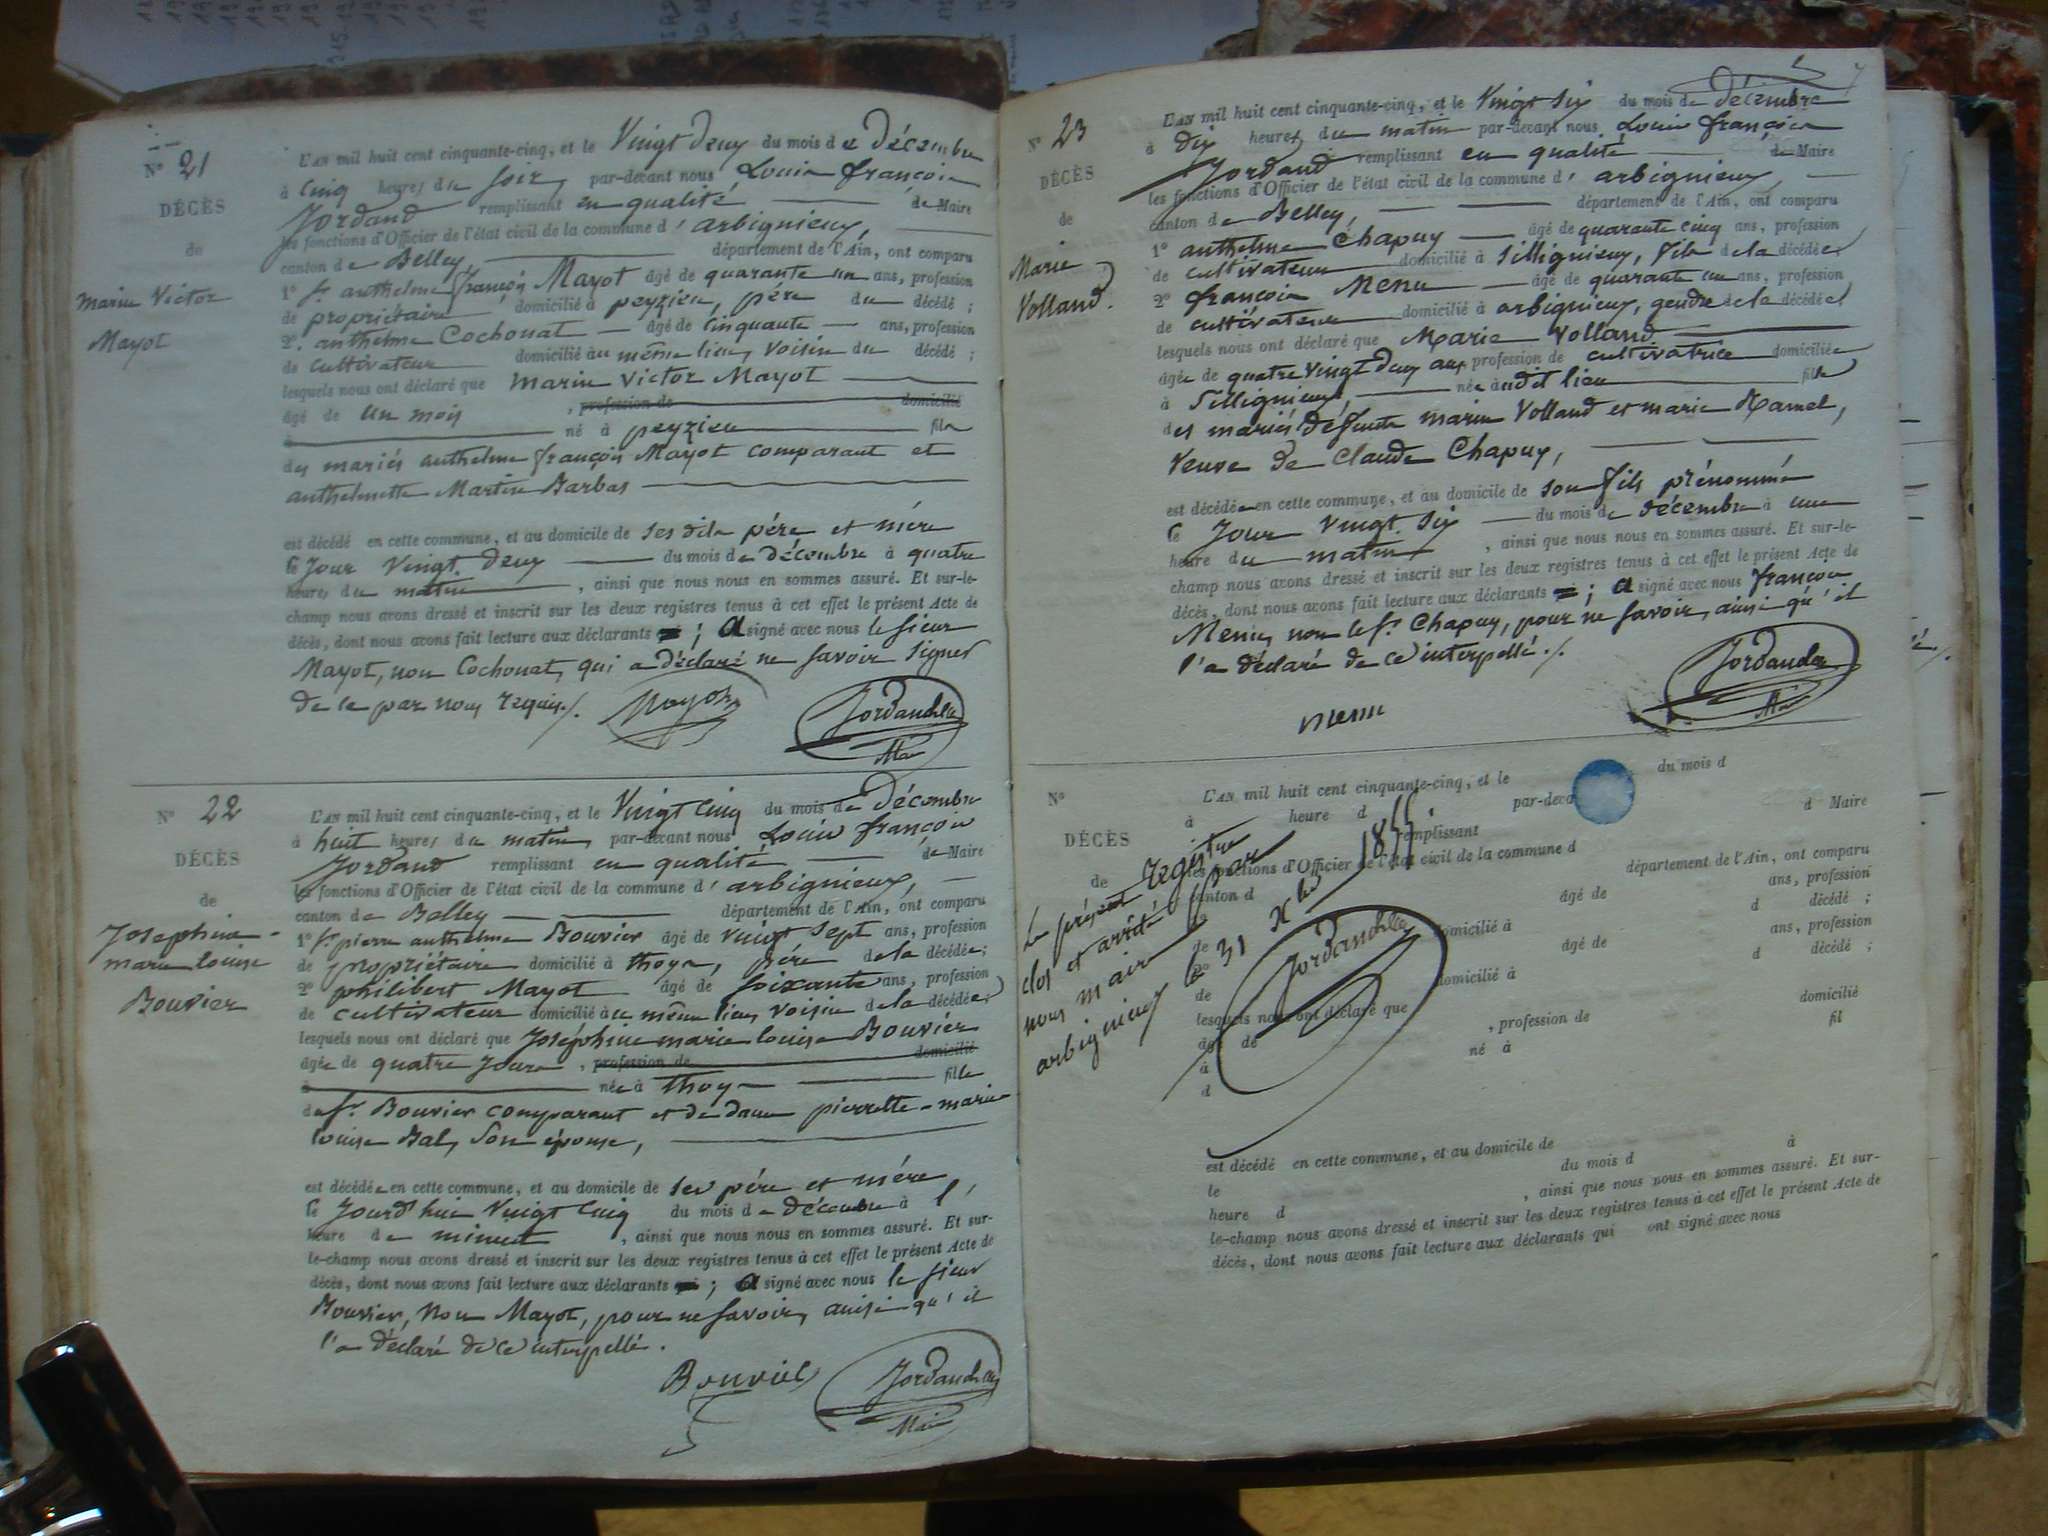 N° 21
DÉCÈS
de
Marin Victor
Mayot
L'AN mil huit cent cinquante-cinq, et le Vingt deux du mois de décembre
à Cinq heures du soir, par-devant nous Louis françois
Jordand remplissant en qualité de Maire
les fonctions d'Officier de l'état civil de la commune d'arbignieux,
canton de Belley département de l'Ain, ont comparu
1° Sr. anthelme françois Mayot âgé de quarante un ans, profession
de propriétaire domicilié à peyzieu, père du décédé ;
2°. anthelme Cochonat âgé de Cinquante ans, profession
de Cultivateur domicilié au même lieu, voisin du décédé ;
lesquels nous ont déclaré que Marin Victor Mayot
âgé de un mois , profession de domicilié
à né à peyzieu fils
des mariés anthelme françois Mayot comparant et
anthelmette Martin Barbas
est décédé en cette commune, et au domicile de ses dits père et mère
le Jour Vingt deux du mois de décembre à quatre
heures du matin , ainsi que nous nous en sommes assuré. Et sur-le-
champ nous avons dressé et inscrit sur les deux registres tenus à cet effet le présent Acte de
décès, dont nous avons fait lecture aux déclarants ; a signé avec nous le sieur
Mayot, non Cochonat, qui a déclaré ne savoir signer
de ce par nous requis ./.
Mayot
Jordand
Maire
N° 22
DÉCÈS
de
Joséphine-
marie louise
Bouvier
L'AN mil huit cent cinquante-cinq, et le Vingt cinq du mois de décembre
à huit heures du matin, par-devant nous Louis françois
Jordand remplissant en qualité de Maire
les fonctions d'Officier de l'état civil de la commune d'arbignieux,
canton de Belley département de l'Ain, ont comparu
1° Sr pierre anthelme Bouvier âgé de vingt sept ans, profession
de propriétaire domicilié à thoys, père de la décédée ;
2° philibert Mayot âgé de soixante ans, profession
de cultivateur domicilié au même lieu, voisin de la décédée ;
lesquels nous ont déclaré que Joséphine marie louise Bouvier
âgée de quatre Jours , profession de domicilié
à née à thoys fille
du Sr. Bouvier comparant et de dame pierrette-marie
louise Bal, son épouse,
est décédée en cette commune, et au domicile de ses père et mère
le Jourd'hui Vingt cinq du mois de décembre à l'
heure de minuit , ainsi que nous nous en sommes assuré. Et sur-
le-champ nous avons dressé et inscrit sur les deux registres tenus à cet effet le présent Acte de
décès, dont nous avons fait lecture aux déclarants ; a signé avec nous le sieur
Bouvier, non Mayot, pour ne savoir, ainsi qu'il
l'a déclaré de ce interpellé.
Bouvier
Jordand
Maire
N° 23
DÉCÈS
de
Marie
Volland.
L'AN mil huit cent cinquante-cinq, et le Vingt Six du mois de décembre
à dix heures du matin par-devant nous Louis françois
Jordand remplissant en qualité de Maire
les fonctions d'Officier de l'état civil de la commune d'arbignieux,
canton de Belley, département de l'Ain, ont comparu
1° anthelme Chapuy âgé de quarante cinq ans, profession
de cultivateur domicilié à Sillignieux, fils de la décédée ;
2° françois Menu âgé de quarante un ans, profession
de cultivateur domicilié à arbignieux, gendre de la décédée ;
lesquels nous ont déclaré que Marie Volland
âgée de quatre vingt deux ans, profession de cultivatrice domiciliée
à Sillignieux, née audit lieu fille
des mariés défunts marin Volland et marie Ramel,
Veuve de Claude Chapuy,
est décédée en cette commune, et au domicile de son fils prénommé
le Jour Vingt Six du mois de décembre à une
heure du matin , ainsi que nous nous en sommes assuré. Et sur-le-
champ nous avons dressé et inscrit sur les deux registres tenus à cet effet le présent Acte de
décès, dont nous avons fait lecture aux déclarants ; a signé avec nous françois
Menu, non le Sr. Chapuy, pour ne savoir, ainsi qu'il
l'a déclaré de ce interpellé ./.
menu
Jordand
Maire
N°
DÉCÈS
de
L'AN mil huit cent cinquante-cinq, et le du mois d
à heure d par-deva
remplissant d Maire
les fonctions d'Officier de l'état civil de la commune d
canton d département de l'Ain, ont comparu
âgé de ans, profession
de domicilié à d décédé ;
2° âgé de ans, profession
de domicilié à d décédé ;
lesquels nous ont déclaré que
âgé de , profession de domicilié
à né à fil
d
Le présent registre
clos et arrêté par
nous maire
arbignieux le 31 Xbre 1855.
Jordand
est décédé en cette commune, et au domicile de
le du mois d à
heure d , ainsi que nous nous en sommes assuré. Et sur-
le-champ nous avons dressé et inscrit sur les deux registres tenus à cet effet le présent Acte de
décès, dont nous avons fait lecture aux déclarants qui ont signé avec nous